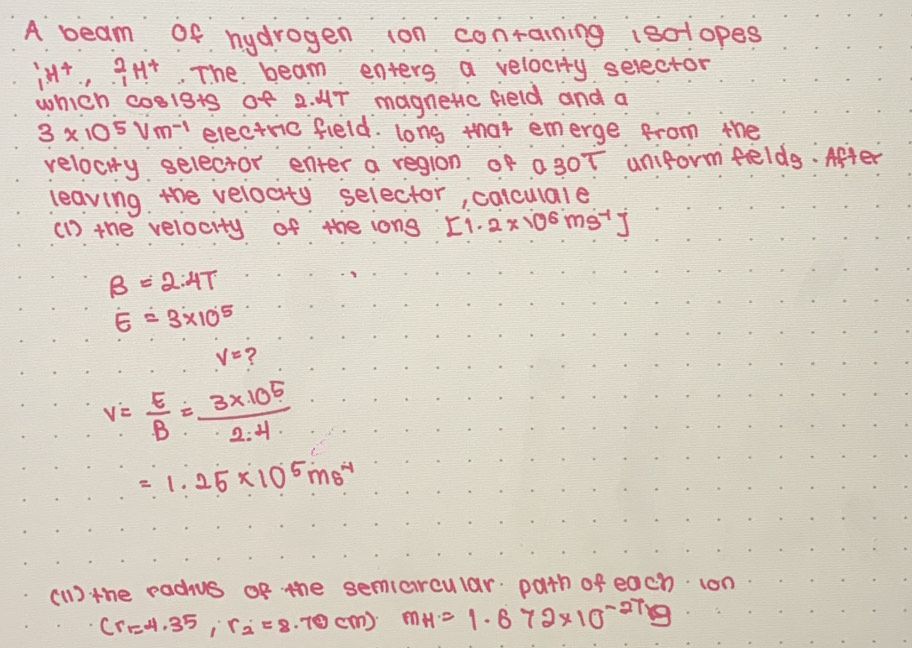 A beam of hydrogen ion containing isotopes
¹₁H⁺, ²₁H⁺. The beam enters a velocity selector
which cosists of 2.4T magnetic field and a
3 × 10⁵ Vm⁻¹ electric field. Ions that emerge from the
velocity selector enter a region of 0.30T uniform fields. After
leaving the velocity selector, calculate
(i) the velocity of the ions [1.2 × 10⁵ ms⁻¹]
B = 2.4T
E = 3×10⁵
V = ?
V = E/B = 3×10⁵/2.4
= 1.25 × 10⁵ ms⁻¹
(ii) the radius of the semicircular path of each ion
(r₁=4.35, r₂ = 8.70 cm) mH = 1.672×10⁻²⁷kg